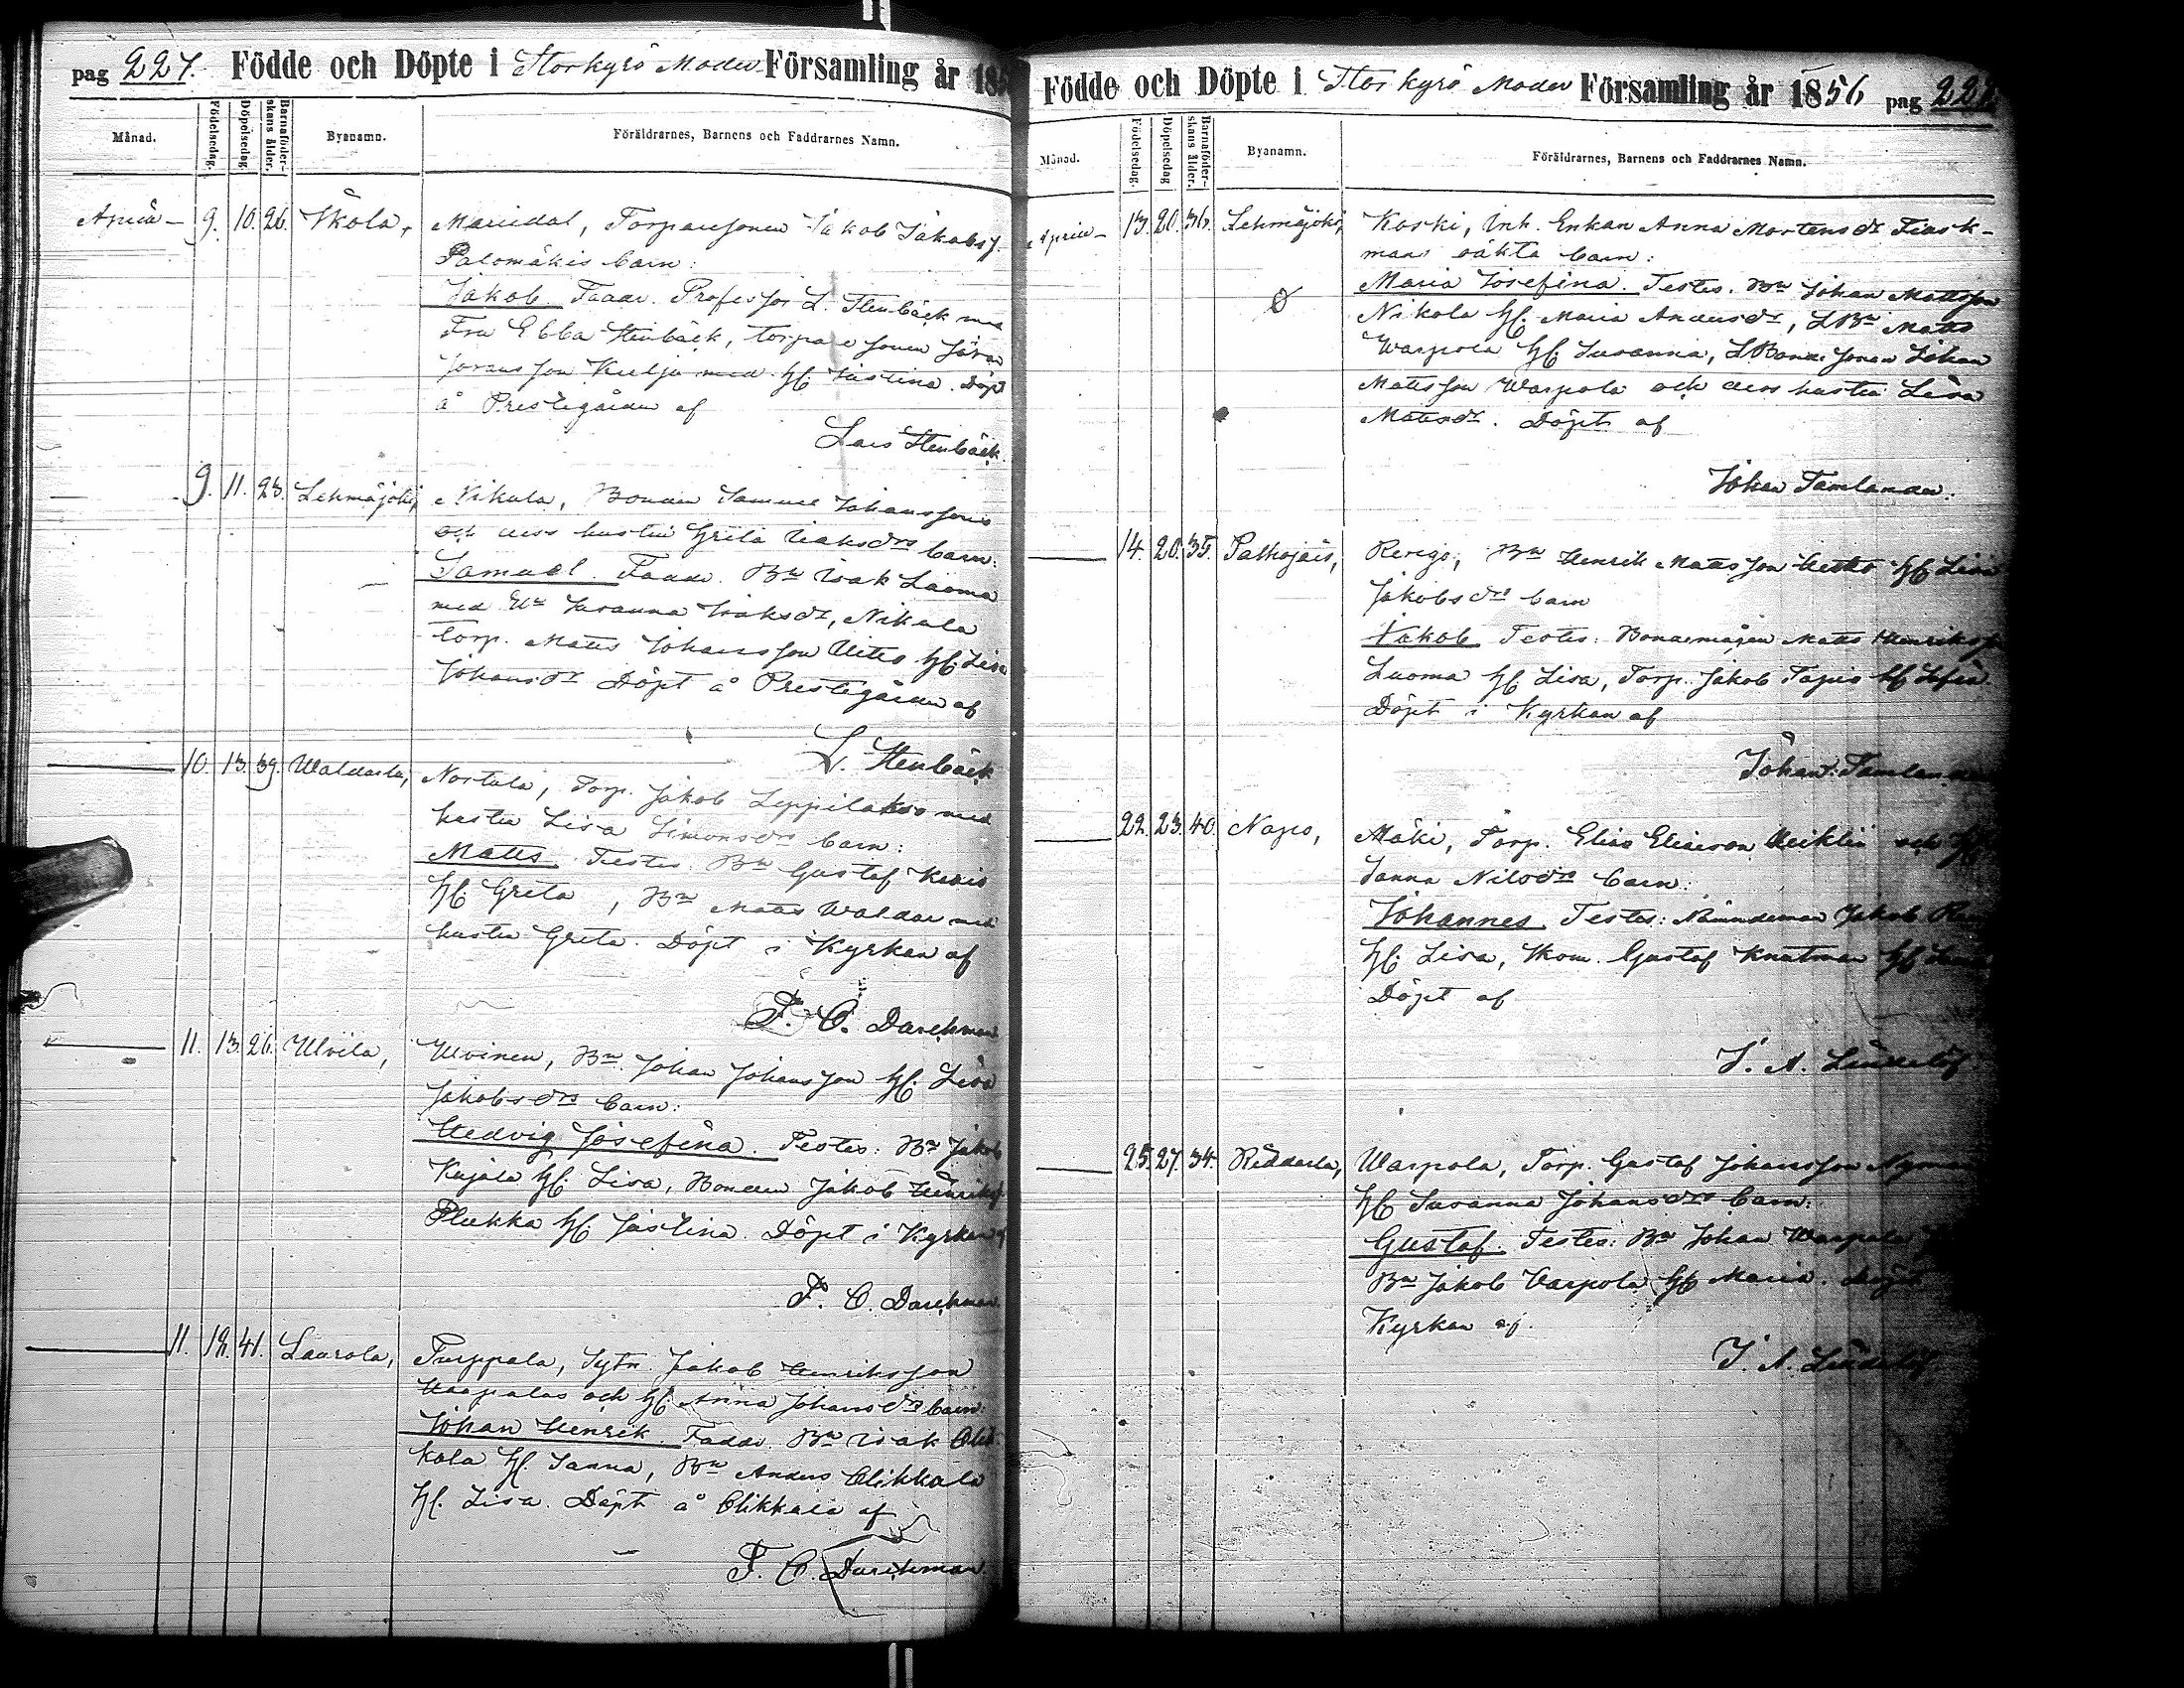 pag 227. Födde och Döpte i Storkyrö Moder Församling år 185
Månad. Födelsedag. Döpelsedag. Barnaföderskans ålder. Byanamn. Föräldrarnes, Barnens och Faddrarnes Namn.
April — 9. 10. 26. Skola, Mariedal, Torparesonen Jakob Jakobs.
Palomäkis barn:
Jakob. Faddr. Professor L. Stenbäck med
Fru Ebba Stenbäck, torparesonen Göran
Göransson Kielju med h. Justina. Döpt
å Prestegården af
Lars Stenbäck.
9. 11. 23. Lehmäjoki, Nikula, Bonden Samuel Johanssons
och dess hustru Greta Isaksdrs barn:
Samuel. Faddr. Bn Isak Laoma
med Susanna Isaksdr, Nikula
torp. Matts Johansson Uitto h. Lisa
Johansdr Döpt å Prestegården af
L. Stenbäck
10. 13. 39. Waldarla, Nortala, Torp. Jakob Leppilakso med
hustru Lisa Simonsdrs barn:
Matts. Testes. Bn Gustaf
h. Greta, Bn Matts Waldar med
hustru Greta. Döpt i Kyrkan af
F. O. Durchman
11. 13. 26. Ulvila, Ulvinen, Bn. Johan Johansson h. Lisa
Jakobsdrs barn:
Hedvig Josefina. Testes: Bn Jakob
Kujala h. Lisa, Bonden Jakob Henriks.
Plukka h. Justina. Döpt i Kyrkan af
F. O. Durchman.
11. 18. 41. Laurola, Purppala, Sytn. Jakob Henriksson
Haapalas och h. Anna Johansdrs barn:
Johan Henrik. Faddr. Bn Isak Olik
kala h. Sanna, Bn Anders Olikkala
h. Lisa. Döpt å Olikkala af
F. O. Durchman
Födde och Döpte i Storkyrö Moder Församling år 1856 pag 228
Månad. Födelsedag. Döpelsedag Barnaföderskans ålder. Byanamn. Föräldrarnes, Barnens och Faddrarnes Namn.
April — 13. 20. 36. Lehmäjoki, Koski, Inh. Enkan Anna Mortensdr Fiask-
mans oäkta barn:
Maria Josefina. Testes. Bn Johan Mattsson
Nikola h. Maria Andersdr, LBn Matts
Warpola h. Susanna, LBondesonen Johan
Mattsson Warpola och dess hustru Lisa
Mattsdr. Döpt af
Johan Tamlander.
14. 20. 35. Palhojais, Rengo, Bn Henrik Mattsson h Lisa
Jakobsdrs barn
Jakob Testes: Bondemågen Matts Henrikss
Luoma h. Lisa, Torp. Jakob Tapio h Sofia.
Döpt i Kyrkan af
Johan Tamlander
22. 23. 40. Napo, Mäki, Torp. Elias Eliasson och h
Sanna Nilsdrs barn:
Johannes. Testes: Nämndeman Jakob
h. Lisa, Skom. Gustaf Knutman h
Döpt af
J. A. Lindelöf
25. 27. 34. Riddarla, Warpola, Torp. Gustaf Johansson Nyman
h Susanna Johansdrs barn:
Gustaf. Testes: Bn Johan Warpola
Bn Jakob Varpola h Maria. Döpt
Kyrkan af.
J. A. Lindelöf